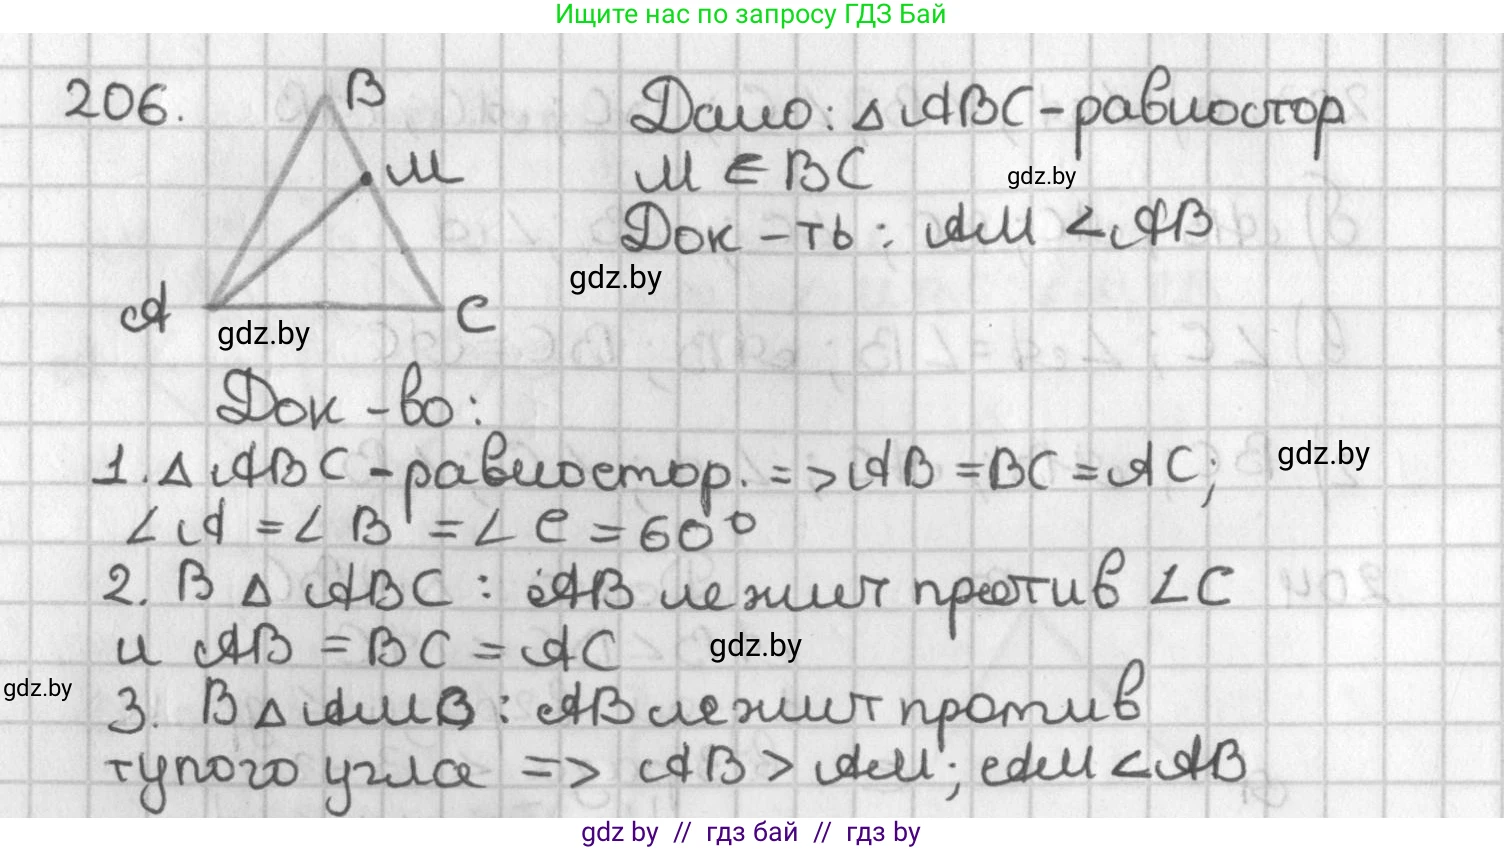 Ищите нас по запросу ГДЗ Бай
206.
B
M
A
C
Дано: △ ABC - равностор
M ∈ BC
gdz.by
Док - ть: AM < AB
gdz.by
gdz.by
Док - во:
1. △ ABC - равностор. => AB = BC = AC;
gdz.by
∠A = ∠B = ∠C = 60°
2. В △ ABC : AB лежит против ∠C
и AB = BC = AC
gdz.by
gdz.by
3. В △ AMB : AB лежит против
тупого угла => AB > AM; AM < AB
gdz.by // гдз бай // гдз by